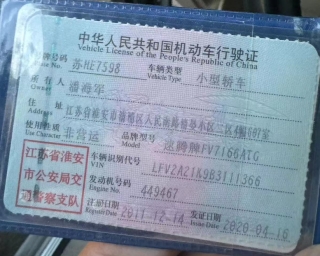 中华人民共和国机动车行驶证
Vehicle License of the People's Republic of China
号牌号码 苏HE7598 车辆类型 小型轿车
Plate No. Vehicle Type
所有人 潘海军
Owner
住 址 江苏省淮安市
Address
使用性质 非营运 品牌型号 速腾牌FV7166ATG
Model
江苏省淮安
市公安局交
通警察支队
车辆识别代号 LFV2A21K9B3111366
VIN
发动机号码 449467
Engine No.
注册日期 2011-12-14 发证日期 2020-04-16
Register Date Issue Date